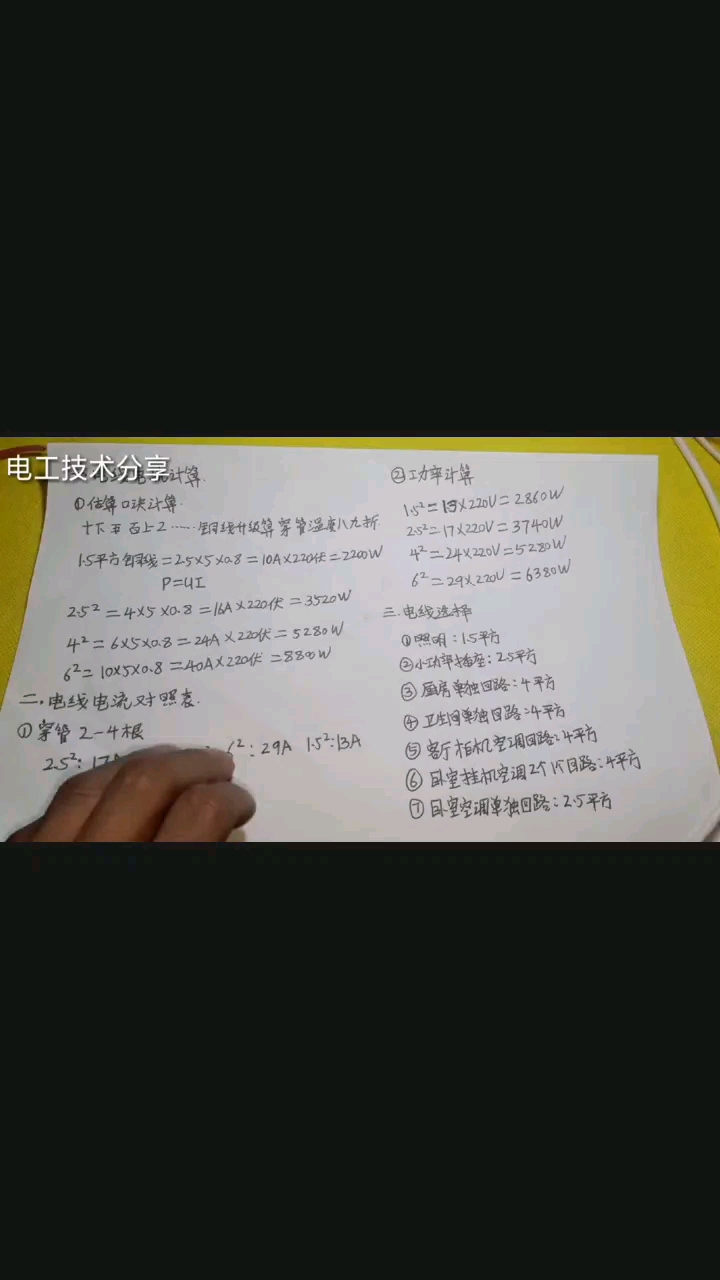 电工技术分享
计算.
①估算口决计算.
十下五百上2……铜线升级算穿管温度八九折.
1.5平方铜线=2.5×5×0.8=10A×220伏=2200W
P=UI
2.5²=4×5×0.8=16A×220伏=3520W
4²=6×5×0.8=24A×220伏=5280W
6²=10×5×0.8=40A×220伏=8800W
二.电线电流对照表.
①穿管2-4根
2.5²:17A 6²:29A 1.5²:13A
②功率计算
1.5²=13×220V=2860W
2.5²=17×220V=3740W
4²=24×220V=5280W
6²=29×220V=6380W
三.电线选择
①照明:1.5平方
②小功率插座:2.5平方
③厨房单独回路:4平方
④卫生间单独回路:4平方
⑤客厅柜机空调回路:4平方
⑥卧室挂机空调2个1个回路:4平方
⑦卧室空调单独回路:2.5平方